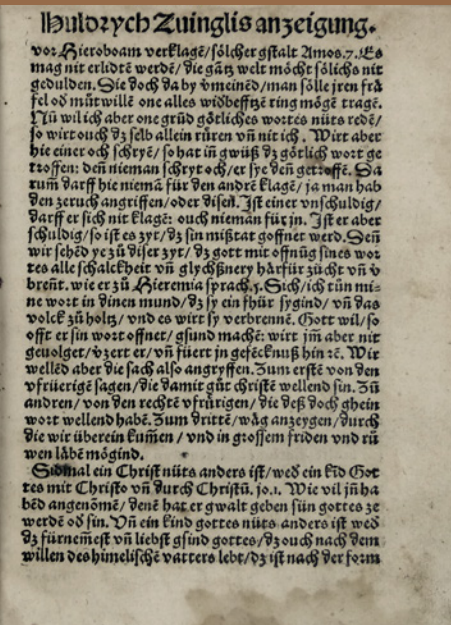 Huldrych Zuinglis anzeigung.
vor Hieroboam verklagē/sölcher gstalt Amos.7. Es
mag nit erlidtē werdē/die gātz welt möcht sölichs nit
gedulden. Sie doch da by v̄meinēd/man sölle jren frä
fel od̄ mūtwillē one alles widbefftzē ring mögē tragē.
Nū wil ich aber one grūd götliches wortes nüts redē/
so wirt ouch dz selb allein rüren vn̄ nit ich. Wirt aber
hie einer och schryē/so hat in̄ gwüß dz götlich wort ge
troffen: den̄ nieman schryt och/er sye den̄ getroffē. Da
rum̄ darff hie niemā für den andrē klagē/ja man hab
den zeruch angriffen/oder disen̄. Ist einer vnschuldig/
darff er sich nit klagē: ouch nieman für jn. Ist er aber
schuldig/so ist es zyt/dz sin mißtat goffnet werd. Den̄
wir sehēd ye zū diser zyt/dz gott mit offnūg sines wor
tes alle schalckheit vn̄ glychßnery härfür zücht vn̄ v̄
breñt. wie er zū Hieremia sprach.5. Sich/ich tūn mi⸗
ne wort in dinen mund/dz sy ein fhür sygind/vn̄ das
volck zū holtz/vnd es wirt sy verbrennē. Gott wil/so
offt er sin wort offnet/gsund machē: wirt jm̄ aber nit
geuolget/v̄zert er/vn̄ füert jn gefēcknuß hin ꝛē. Wir
wellēd aber die sach also angryffen. Zum erstē von den
vfrüerigē sagen/die damit gūt christē wellend sin. Zū
andren/von den rechtē vfrürigen/die deß doch ghein
wort wellend habē. Zum drittē/wäg anzeygen/durch
die wir überein kum̄en/vnd in grossem friden vnd rū
wen läbē mögind.
Sidmal ein Christ nüts anders ist/wed̄ ein kīd Got
tes mit Christo vn̄ durch Christū. jo.1. Wie vil jn̄ ha
bēd angenōmē/denē hat er gwalt geben sün gottes ze
werdē od̄ sin. Vn̄ ein kind gottes nüts anders ist wed̄
dz fürnem̄est vn̄ liebst gsind gottes/dz ouch nach dem
willen des himelischē vatters lebt/dz ist nach der form